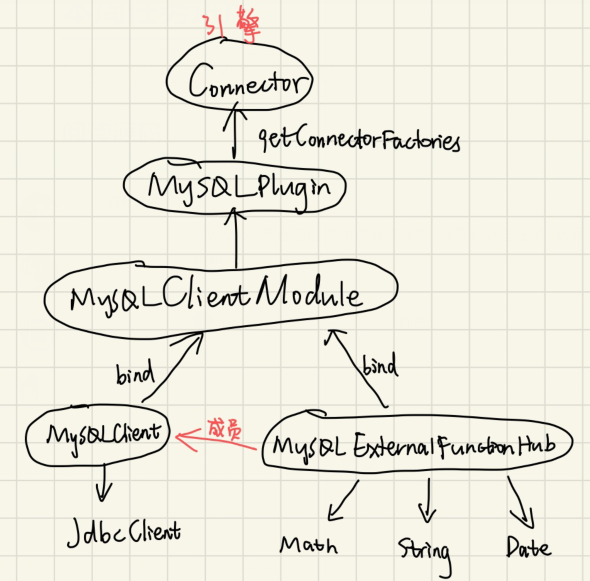 引擎
Connector
getConnectorFactories
MySQLPlugin
MySQLClientModule
bind
bind
MySQLClient
成员
MySQLExternalFunctionHub
JdbcClient
Math
String
Date